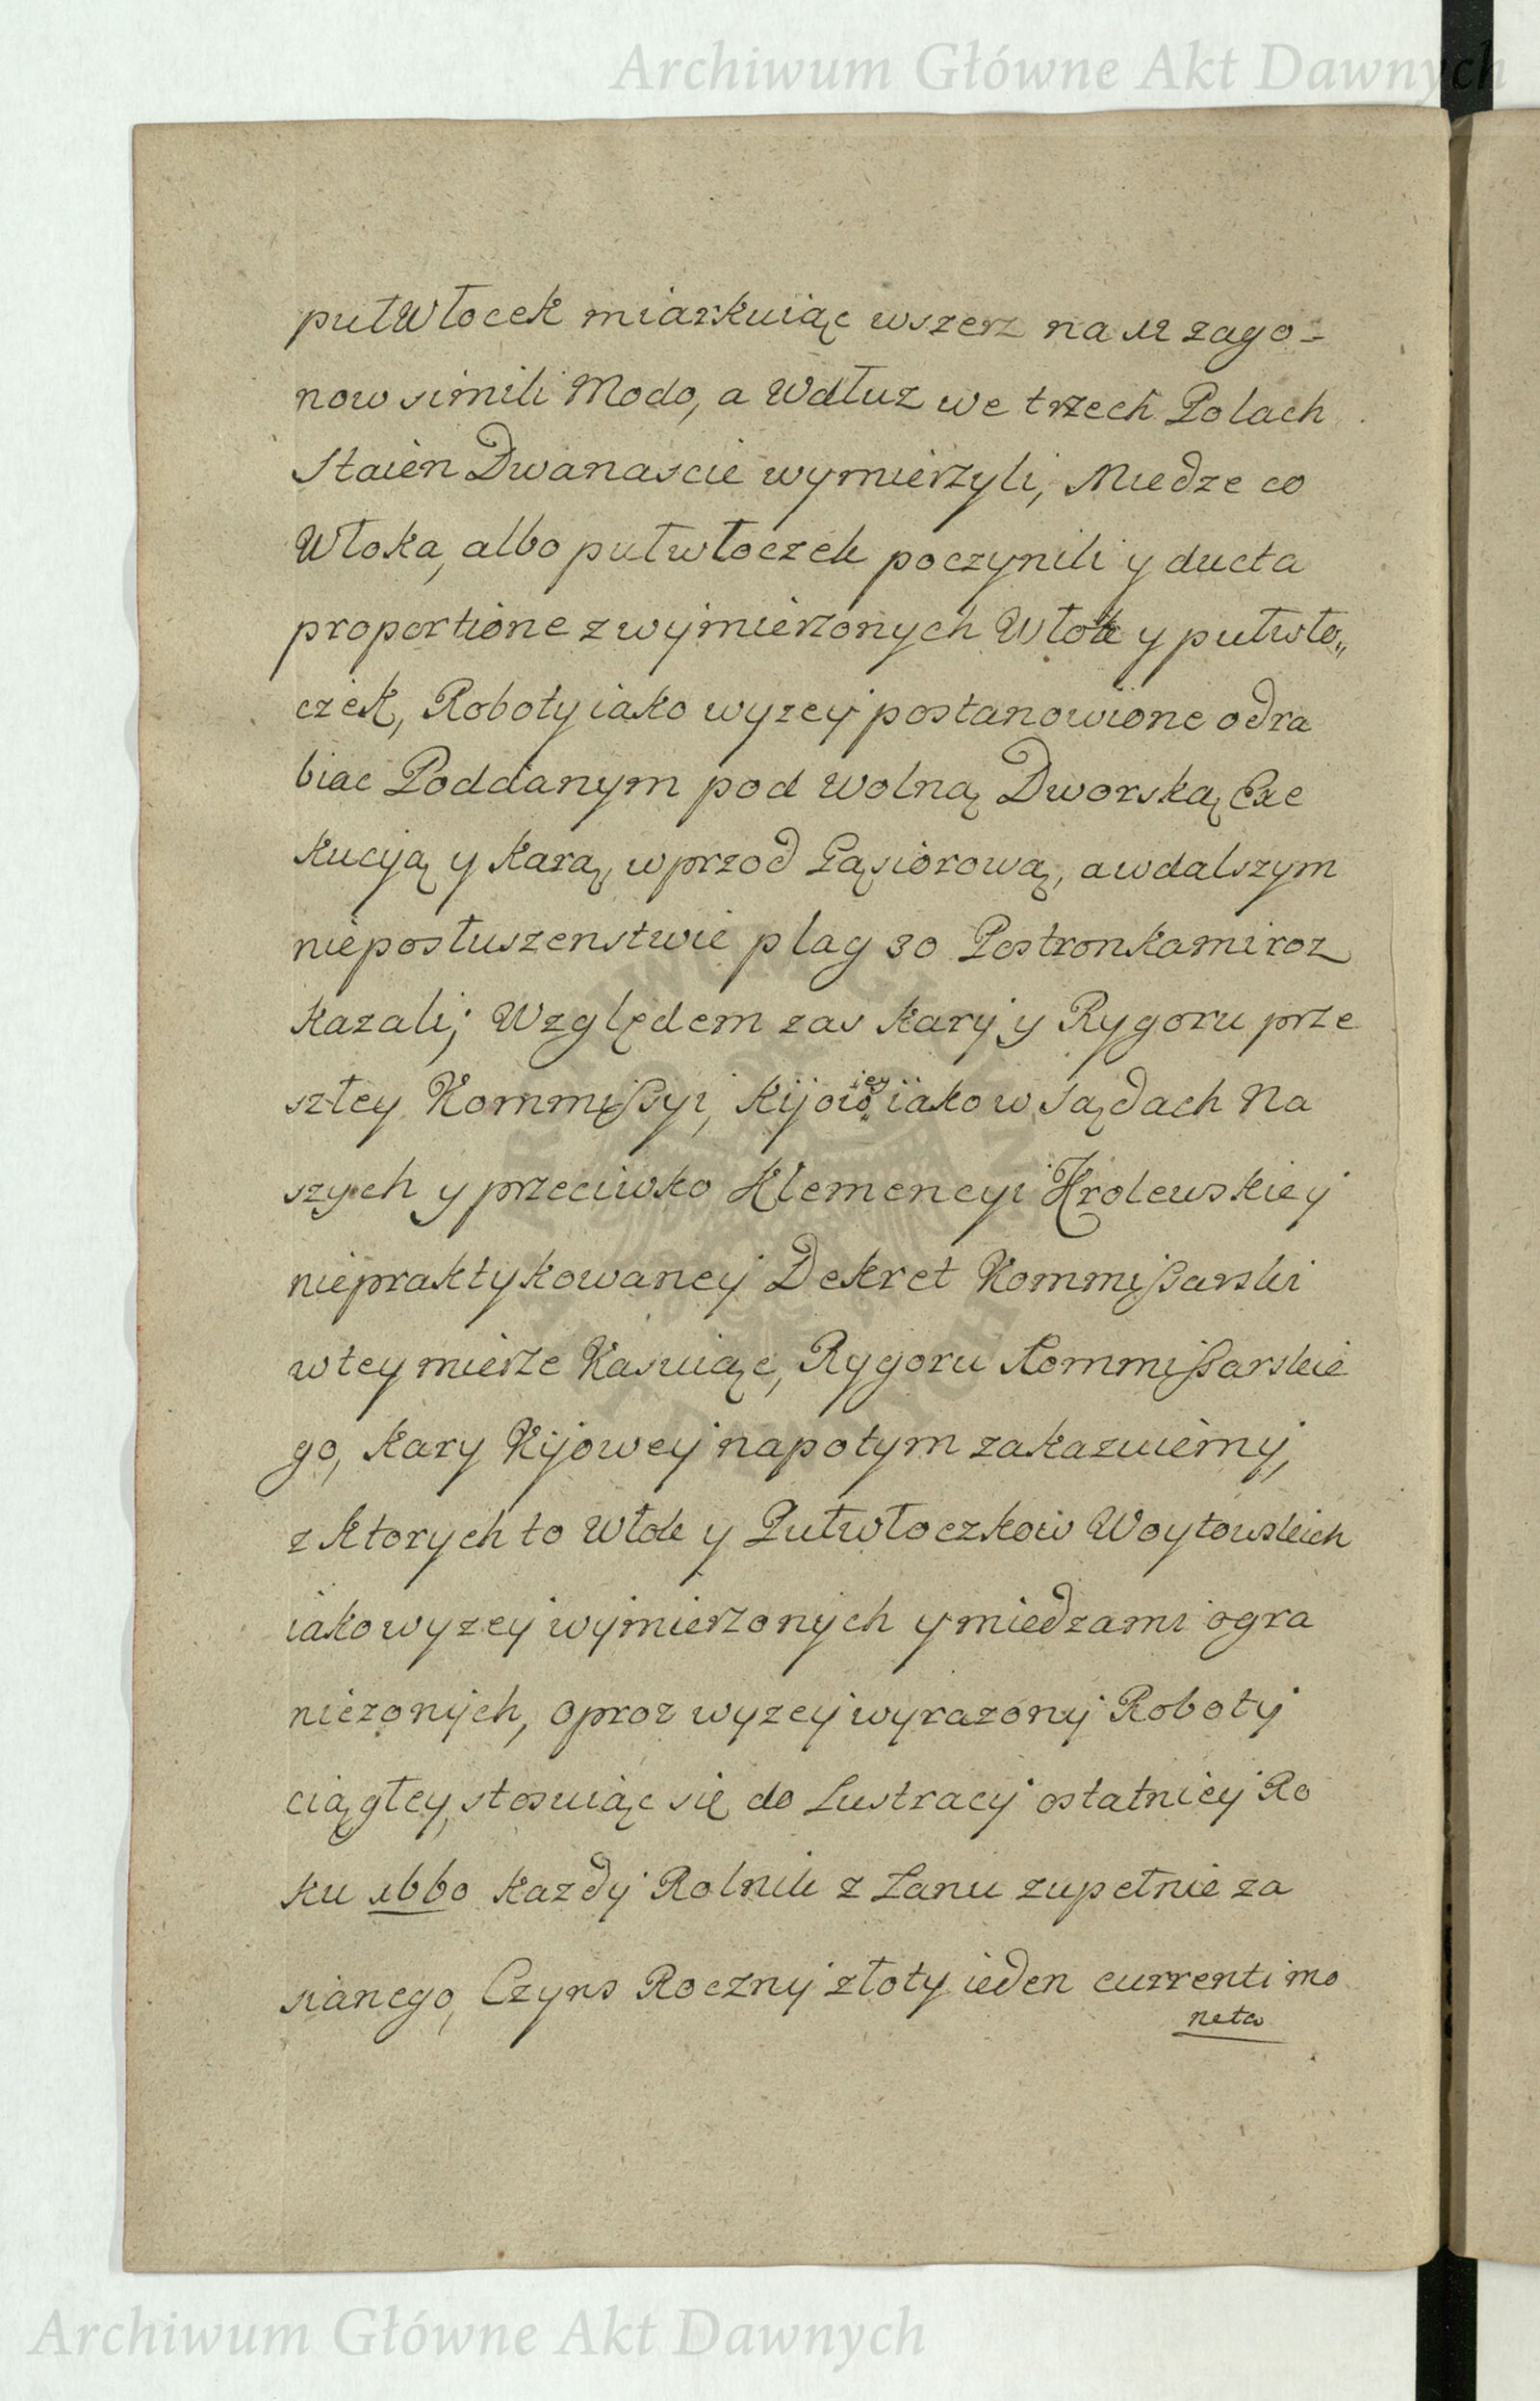 Archiwum Główne Akt Dawnych
pułWłocek miarkuiąc wszerz na 12 zago-
now simili Modo, a Wdłuz we trzech Polach
Staien Dwanascie wymierzyli, Miedze co
Włoka, albo pułwłoczek poczynili y ducta
proportione z wymierzonych Włok y pułwło„
czek, Roboty iako wyzey postanowione odra
biac Poddanym pod wolną Dworską Exe
kucyią y karą, wprzod Gąsiorową, a wdalszym
nieposłuszenstwie plag 30 Postronkami roz
kazali; Względem zas kary y Rygoru prze
szłey Kommißyi, kijowey iako w Sądach Na
szych y przeciwko Klemencyi Krolewskiey
niepraktykowaney Dekret Kommißarski
w tey mierze Kasuiąc, Rygoru Kommißarskie
go, kary Kijowey napotym zakazuiemy,
z ktorych to Włok y Pułwłoczkow Woytowskich
iako wyzey wymierzonych y miedzami ogra
niczonych, oproz wyzey wyrazony Roboty
ciągłey, stosuiąc się do Lustracy ostatniey Ro
ku 1660 kazdy Rolnik z Łanu zupełnie za
sianego, Czyns Roczny złoty ieden currenti mo
neta
Archiwum Główne Akt Dawnych